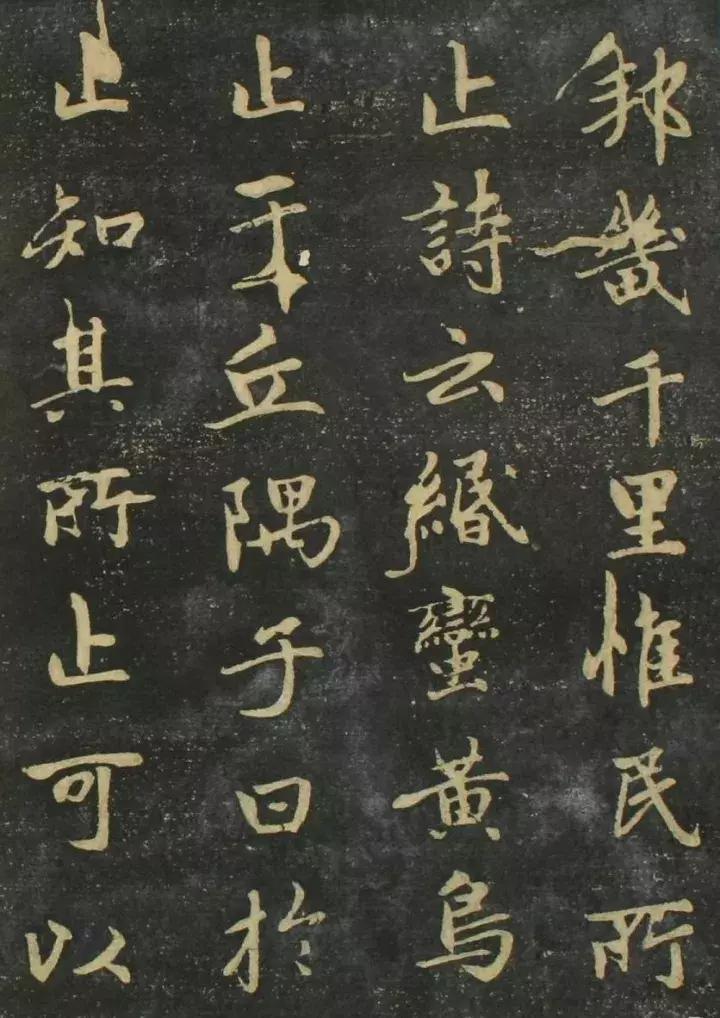 邦畿千里惟民所
止詩云緡蠻黃鳥
止于丘隅子曰於
止知其所止可以